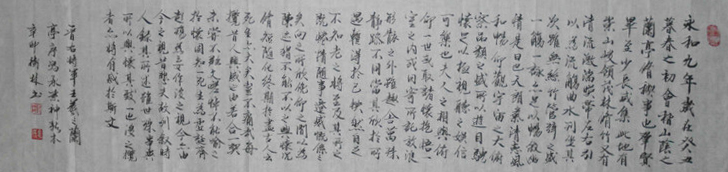 永和九年歲在癸丑
暮春之初會於山陰之
蘭亭脩稧事也羣賢
畢至少長咸集此地有
崇山峻領茂林脩竹又有
清流激湍暎帶左右引
以為流觴曲水列坐其
次雖無絲竹管弦之盛
一觴一詠亦足以暢敘幽
情是日也天朗氣清惠風
和暢仰觀宇宙之大俯
察品類之盛所以遊目騁
懷足以極視聽之娛信
可樂也夫人之相與俯
仰一世或取諸懷抱悟言一
室之內或因寄所託放浪
形骸之外雖趣舍萬殊
靜躁不同當其欣於所
遇暫得於己快然自足
不知老之將至及其所之
既惓情隨事遷感慨係之
矣向之所欣俛仰之間以為
陳迹猶不能不以之興懷況
脩短隨化終期於盡古人云
死生亦大矣豈不痛哉每
攬昔人興感之由若合一契
未嘗不臨文嗟悼不能喻之
於懷固知一死生為虛誕齊
彭殤為妄作後之視今亦由
今之視昔悲夫故列敘時
人錄其所述雖世殊事異
所以興懷其致一也後之攬
者亦將有感於斯文
晉右將軍王羲之蘭
亭序
辛卯